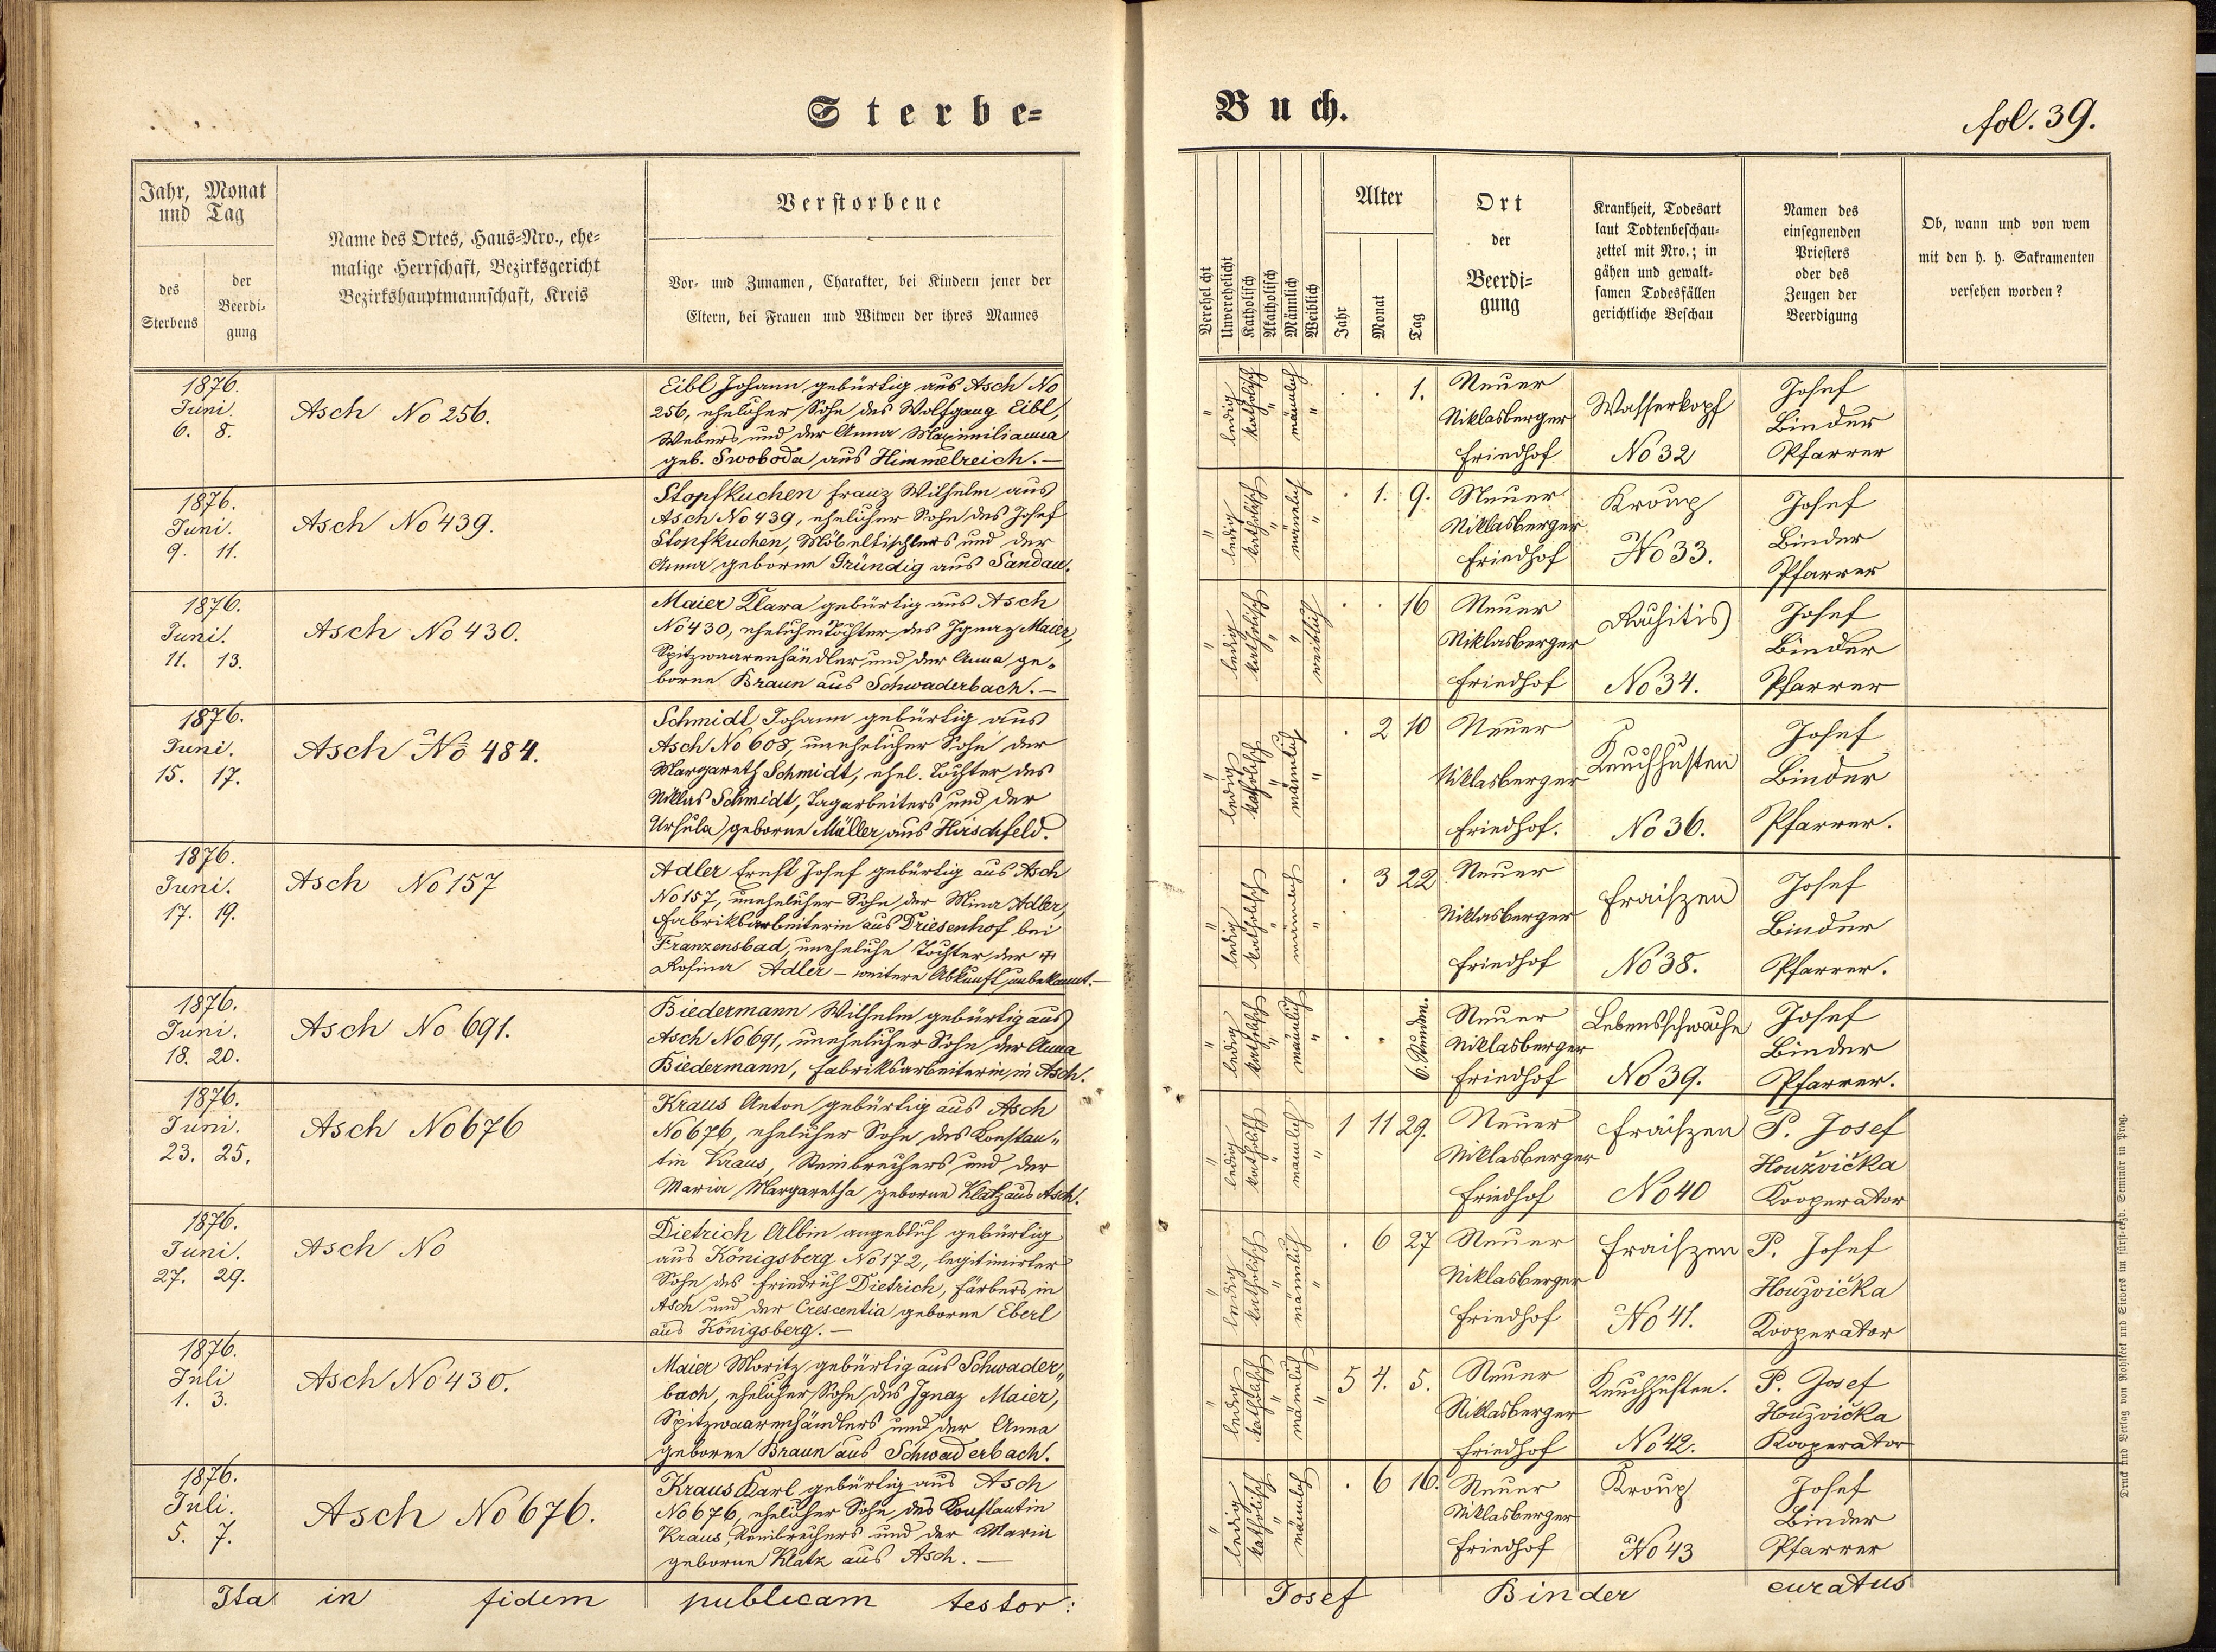 Sterbe=
Buch.
fol. 39.
Jahr, Monat
und Tag
des
Sterbens
der
Beerdi=
gung
Name des Ortes, Haus=Nro., ehe=
malige Herrschaft, Bezirksgericht
Bezirkshauptmannschaft, Kreis
Verstorbene
Vor= und Zunamen, Charakter, bei Kindern jener der
Eltern, bei Frauen und Witwen der ihres Mannes
Verehelicht
Unverehelicht
Katholisch
Akatholisch
Männlich
Weiblich
Alter
Jahr
Monat
Tag
Ort
der
Beerdi=
gung
Krankheit, Todesart
laut Todtenbeschau=
zettel mit Nro.; in
gähen und gewalt=
samen Todesfällen
gerichtliche Beschau
Namen des
einsegnenden
Priesters
oder des
Zeugen der
Beerdigung
Ob, wann und von wem
mit den h. h. Sakramenten
versehen worden?
1876.
Juni.
6. 8.
Asch No 256.
Eibl Johann gebürtig aus Asch No
256, ehelicher Sohn des Wolfgang Eibl,
Webers und der Anna Maximilianna
geb. Swoboda aus Himmelreich.—
" ledig katholisch " männlich "
. . 1.
Neuer
Niklasberger
Friedhof
Wasserkopf
No 32
Josef
Binder
Pfarrer
1876.
Juni.
9. 11.
Asch No 439.
Stopfkuchen Franz Wilhelm aus
Asch No 439, ehelicher Sohn des Josef
Stopfkuchen, Möbeltischlers und der
Anna geborne Gründig aus Sandau.
" ledig katholisch " männlich "
. 1. 9.
Neuer
Niklasberger
Friedhof
Kroup
No 33.
Josef
Binder
Pfarrer
1876.
Juni.
11. 13.
Asch No 430.
Maier Klara gebürtig aus Asch
No 430, eheliche Tochter des Ignaz Maier,
Spitzwaarenhändler und der Anna ge„
borne Braun aus Schwaderbach.—
" ledig katholisch " " weiblich
. . 16
Neuer
Niklasberger
Friedhof
Rachitis
No 34.
Josef
Binder
Pfarrer
1876.
Juni.
15. 17.
Asch No 484.
Schmidt Johann gebürtig aus
Asch No 608, unehelicher Sohn der
Margareth Schmidt, ehel. Tochter des
Niklas Schmidt, Tagarbeiters und der
Ursula geborne Müller aus Hirschfeld.
" ledig katholisch " männlich "
. 2 10
Neuer
Niklasberger
Friedhof.
Keuchhusten
No 36.
Josef
Binder
Pfarrer.
1876.
Juni.
17. 19.
Asch No 157
Adler Ernst Josef gebürtig aus Asch
No 157, unehelicher Sohn der Mina Adler,
Fabriksarbeiterin aus Driesenhof bei
Franzensbad, uneheliche Tochter der †
Rosina Adler – weitere Abkunft unbekannt.—
" ledig katholisch " männlich "
. 3 22
Neuer
Niklasberger
Friedhof
Fraiszen
No 38.
Josef
Binder
Pfarrer.
1876.
Juni.
18. 20.
Asch No 691.
Biedermann Wilhelm gebürtig aus
Asch No 691, unehelicher Sohn der Anna
Biedermann, Fabriksarbeiterin in Asch.
" ledig katholisch " männlich "
. . 6. Stunden.
Neuer
Niklasberger
Friedhof
Lebensschwäche
No 39.
Josef
Binder
Pfarrer.
1876.
Juni.
23. 25.
Asch No 676
Kraus Anton gebürtig aus Asch
No 676, ehelicher Sohn des Konstan„
tin Kraus, Steinbrechers und der
Maria Margaretha geborne Klatz aus Asch.
" ledig katholisch " männlich "
1 11 29.
Neuer
Niklasberger
Friedhof
Fraiszen
No 40
P. Josef
Houžvička
Kooperator
1876.
Juni.
27. 29.
Asch No
Dietrich Albin angeblich gebürtig
aus Königsberg No 172, legitimirter
Sohn des Friedrich Dietrich, Färbers in
Asch und der Crescentia geborne Eberl
aus Königsberg.—
" ledig katholisch " männlich "
. 6 27
Neuer
Niklasberger
Friedhof
Fraiszen
No 41.
P. Josef
Houžvička
Kooperator
1876.
Juli
1. 3.
Asch No 430.
Maier Moritz gebürtig aus Schwader„
bach, ehelicher Sohn des Ignaz Maier,
Spitzwaarenhändlers und der Anna
geborne Braun aus Schwaderbach.
" ledig katholisch " männlich "
5 4. 5.
Neuer
Niklasberger
Friedhof
Keuchhusten.
No 42.
P. Josef
Houžvička
Kooperator
1876.
Juli.
5. 7.
Asch No 676.
Kraus Karl gebürtig aus Asch
No 676, ehelicher Sohn des Konstantin
Kraus, Steinbrechers und der Maria
geborne Klatz aus Asch.—
" ledig katholisch " männlich
. 6 16.
Neuer
Niklasberger
Friedhof
Kroup
No 43
Josef
Binder
Pfarrer
Ita in fidem publicam testor: Josef Binder curatus
Druck und Verlag von Rohliček und Sievers im fürsterzb. Seminär in Prag.